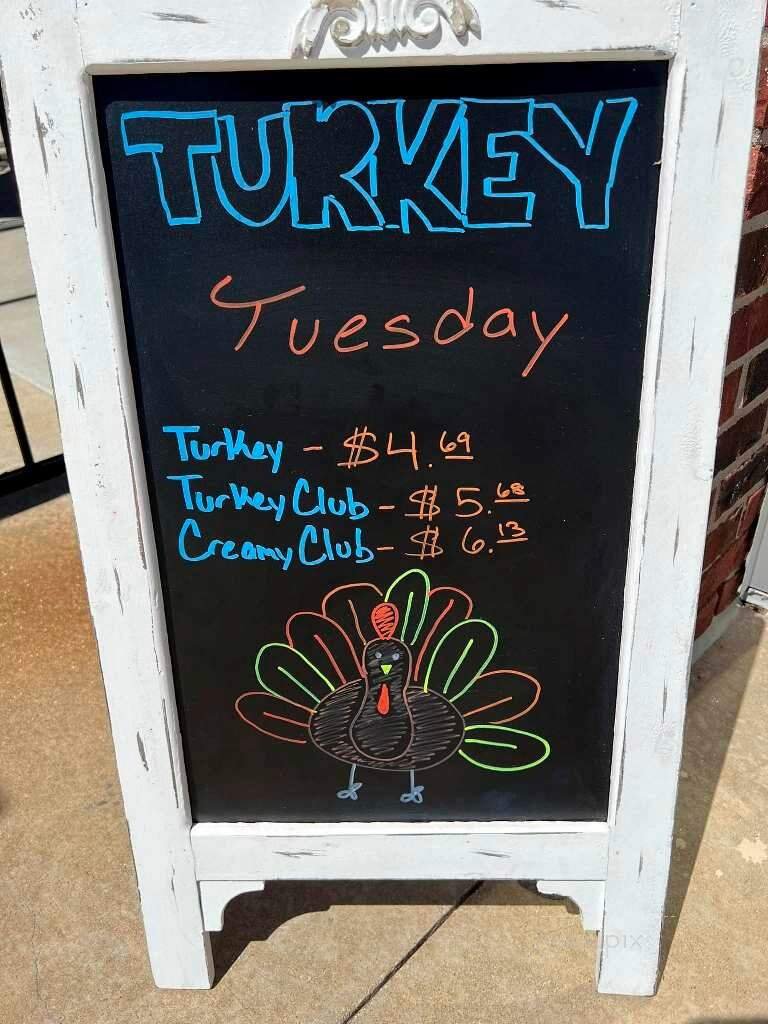 TURKEY
Tuesday
Turkey - $4.69
Turkey Club - $5.68
Creamy Club - $6.13